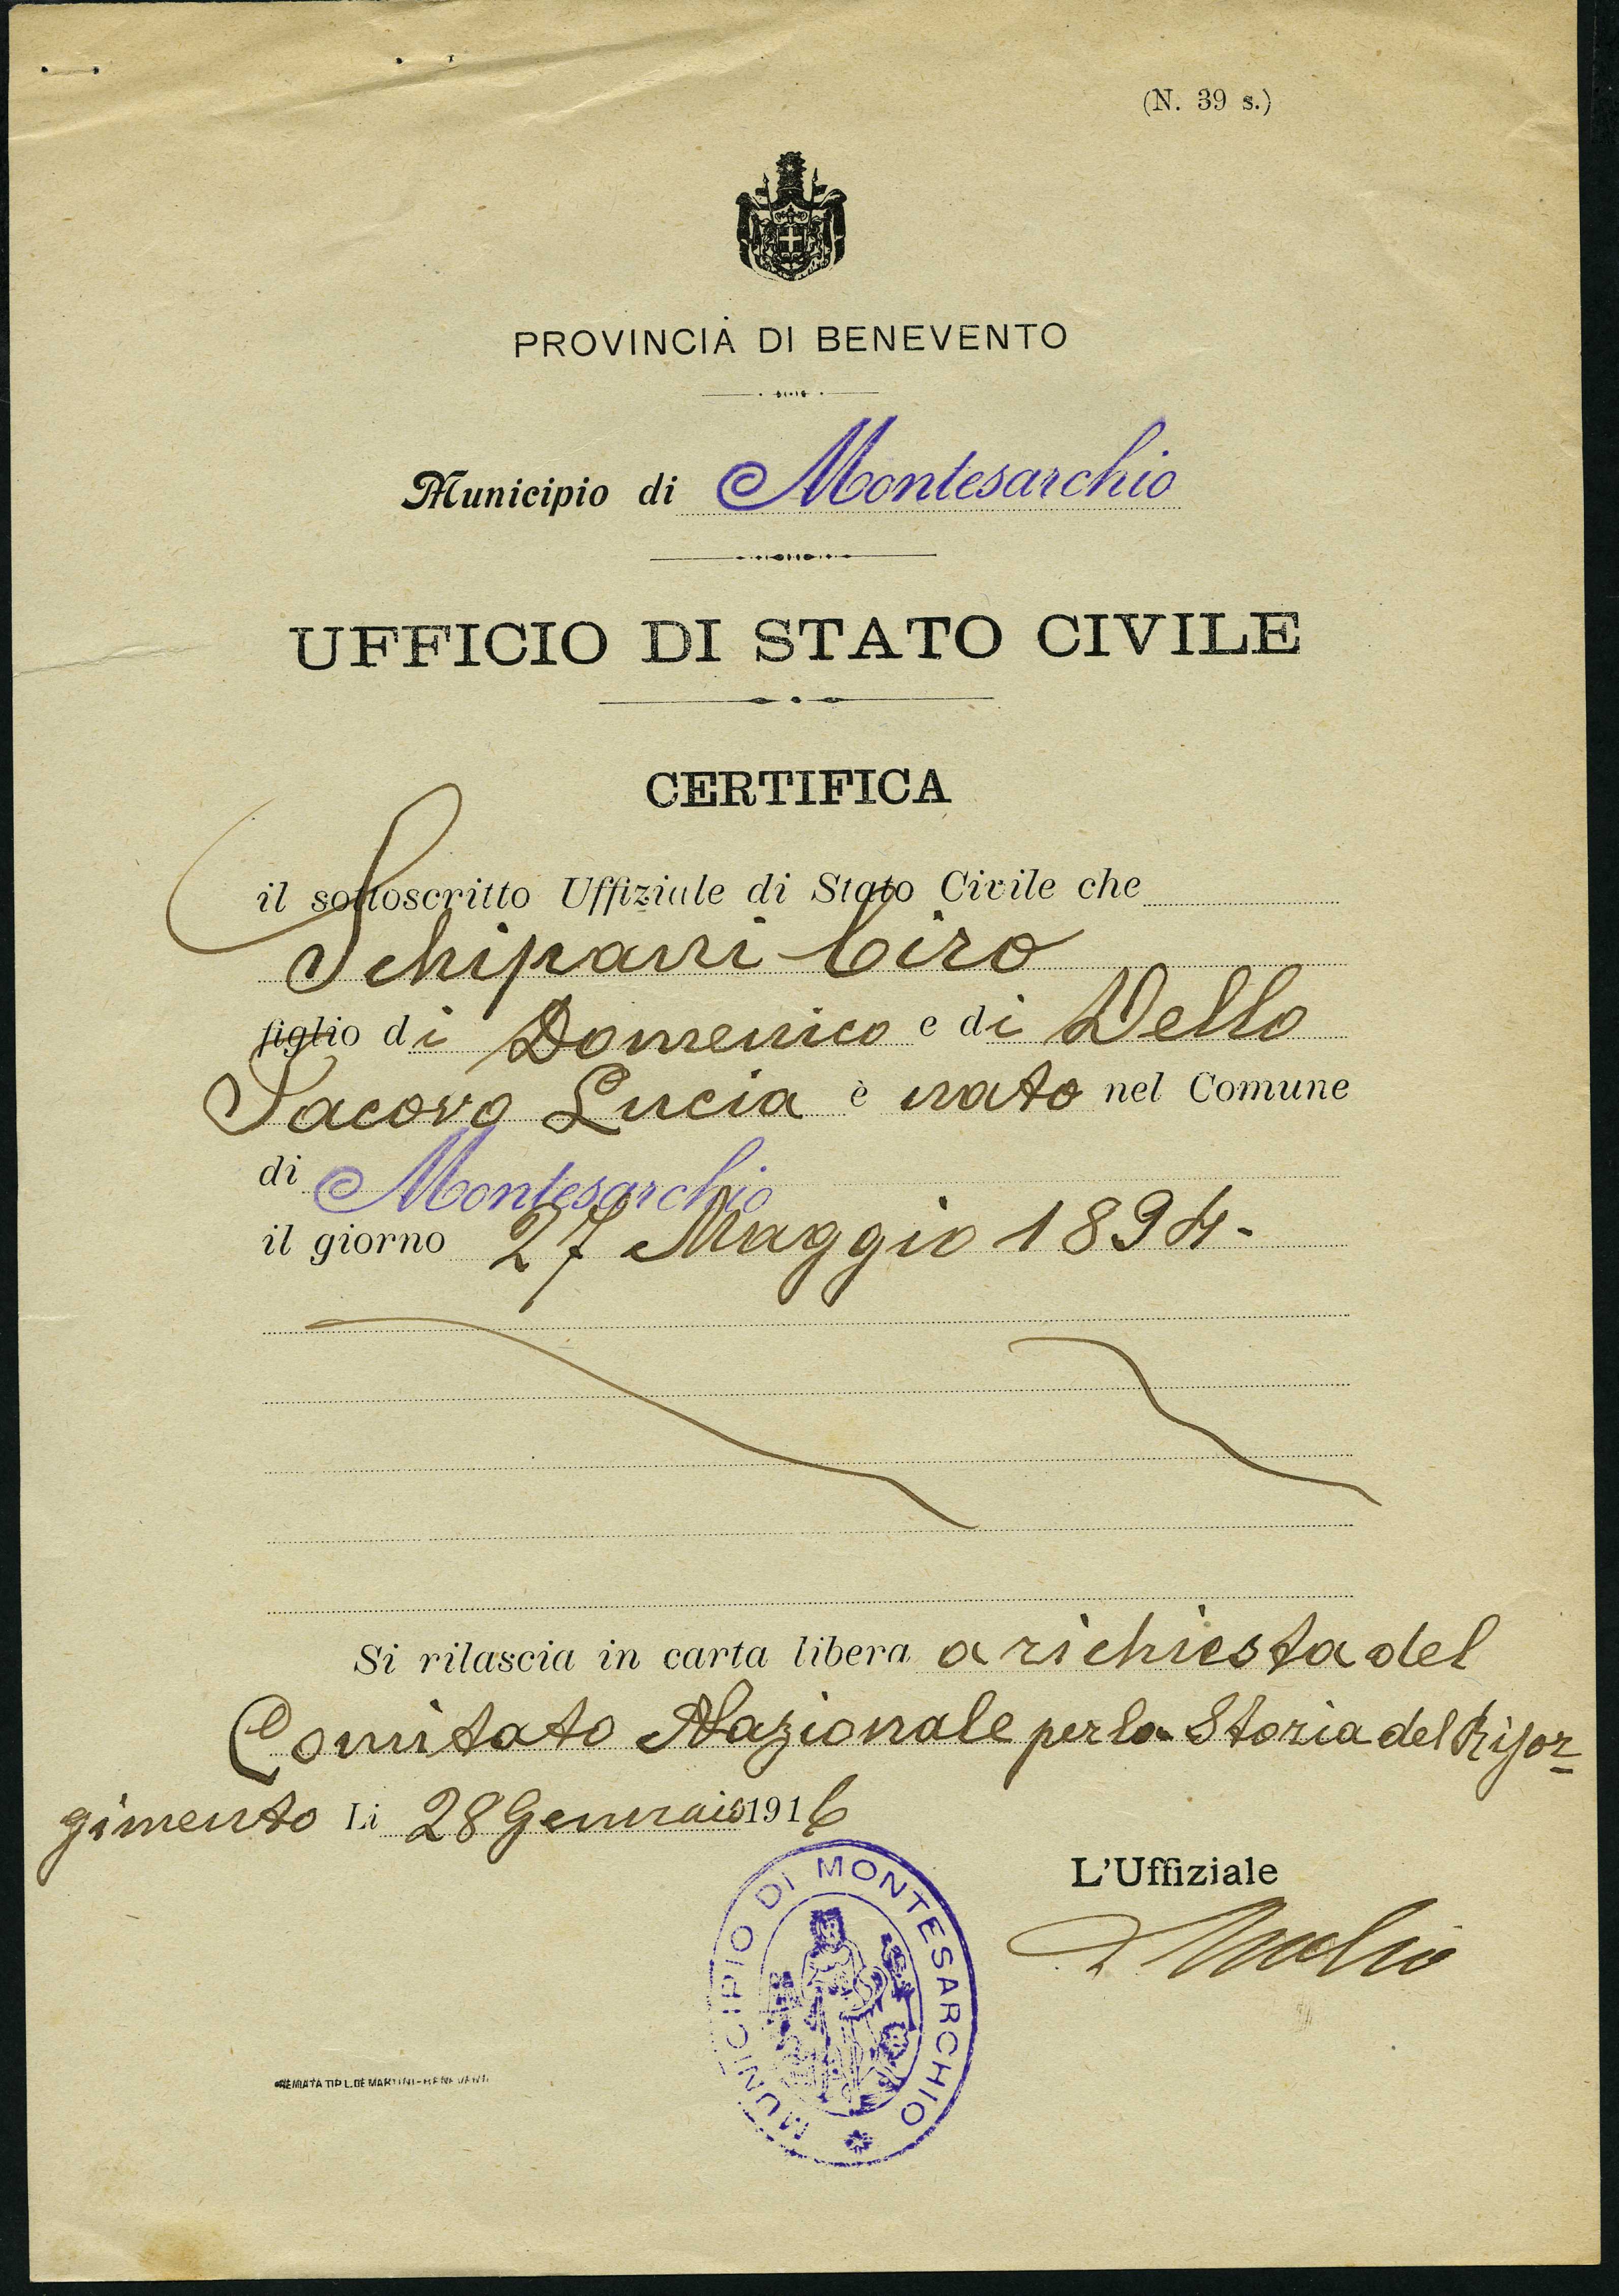 (N. 39 s.)
PROVINCIA DI BENEVENTO
Municipio di Montesarchio
UFFICIO DI STATO CIVILE
CERTIFICA
il sottoscritto Uffiziale di Stato Civile che
Schipani Ciro
figlio di Domenico e di Dello
Iacovo Lucia è nato nel Comune
di Montesarchio
il giorno 27 Maggio 1894.
Si rilascia in carta libera a richiesta del
Comitato Nazionale per la Storia del Risor-
gimento Li 28 Gennaio 1916
L'Uffiziale
MUNICIPIO DI MONTESARCHIO
TIP. L. DE MARTINI - BENEVENTO